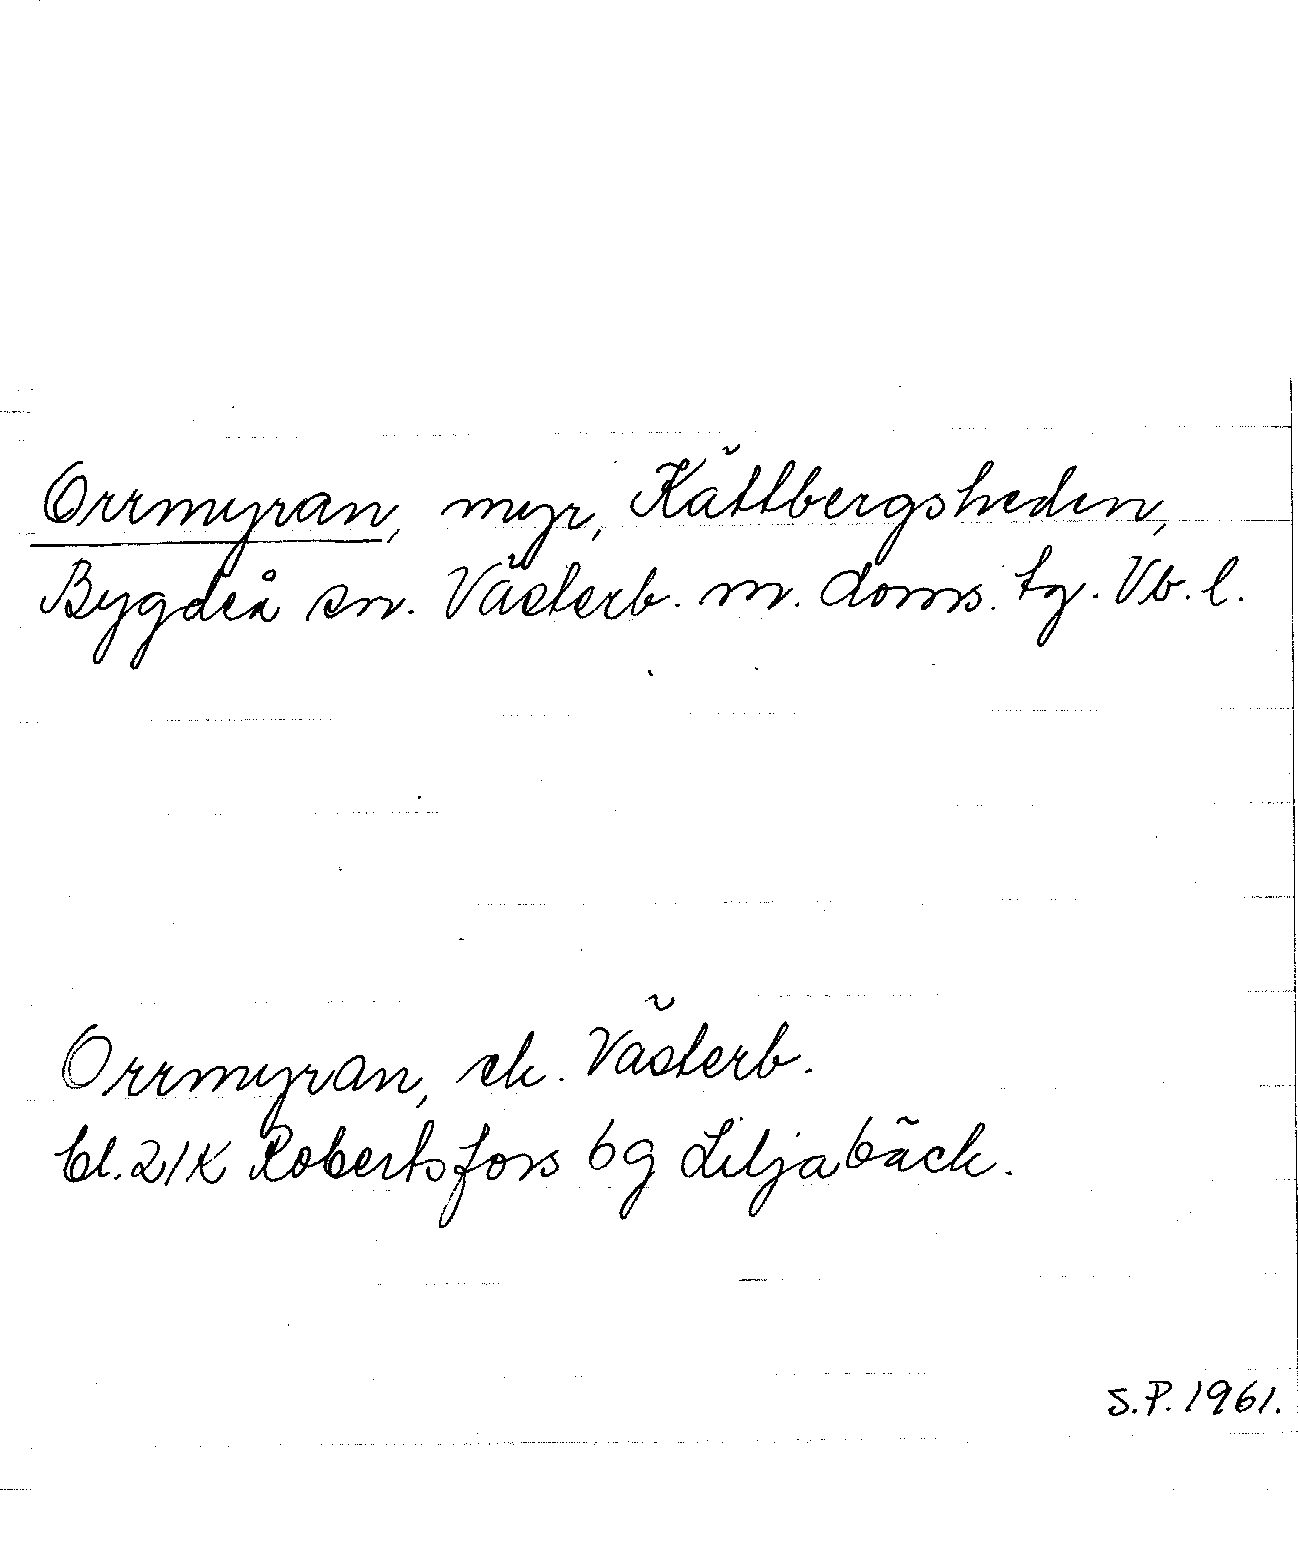 Orrmyran, myr, Kättbergsheden,
Bygdeå sn. Västerb. m. doms. tg. Vb. l.
Orrmyran, ek. Västerb.
bl. 21K Robertsfors bg Liljabäck.
S.P. 1961.